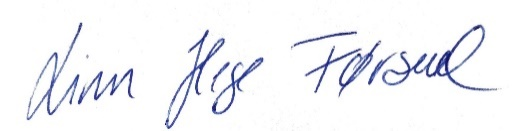 Linn Hege Førsund